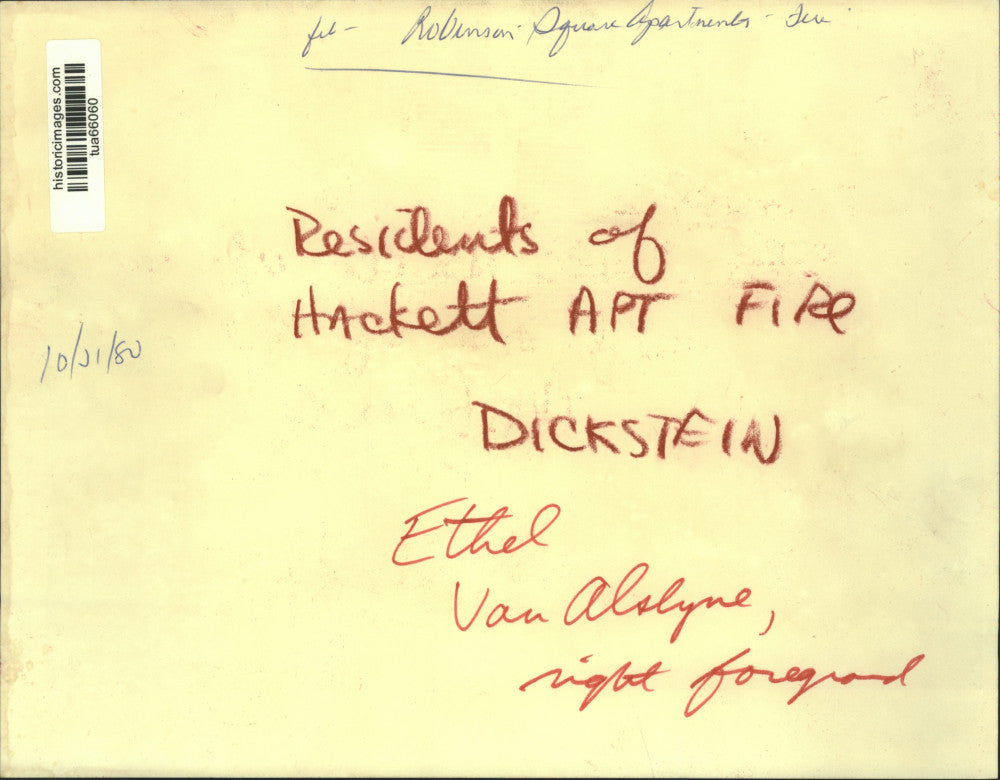 file - Robinson Square Apartments - Fire
historicimages.com
tua66060
Residents of
Hackett APT FIRe
10/21/80
DICKSTEIN
Ethel
Van Alstyne,
right foreground